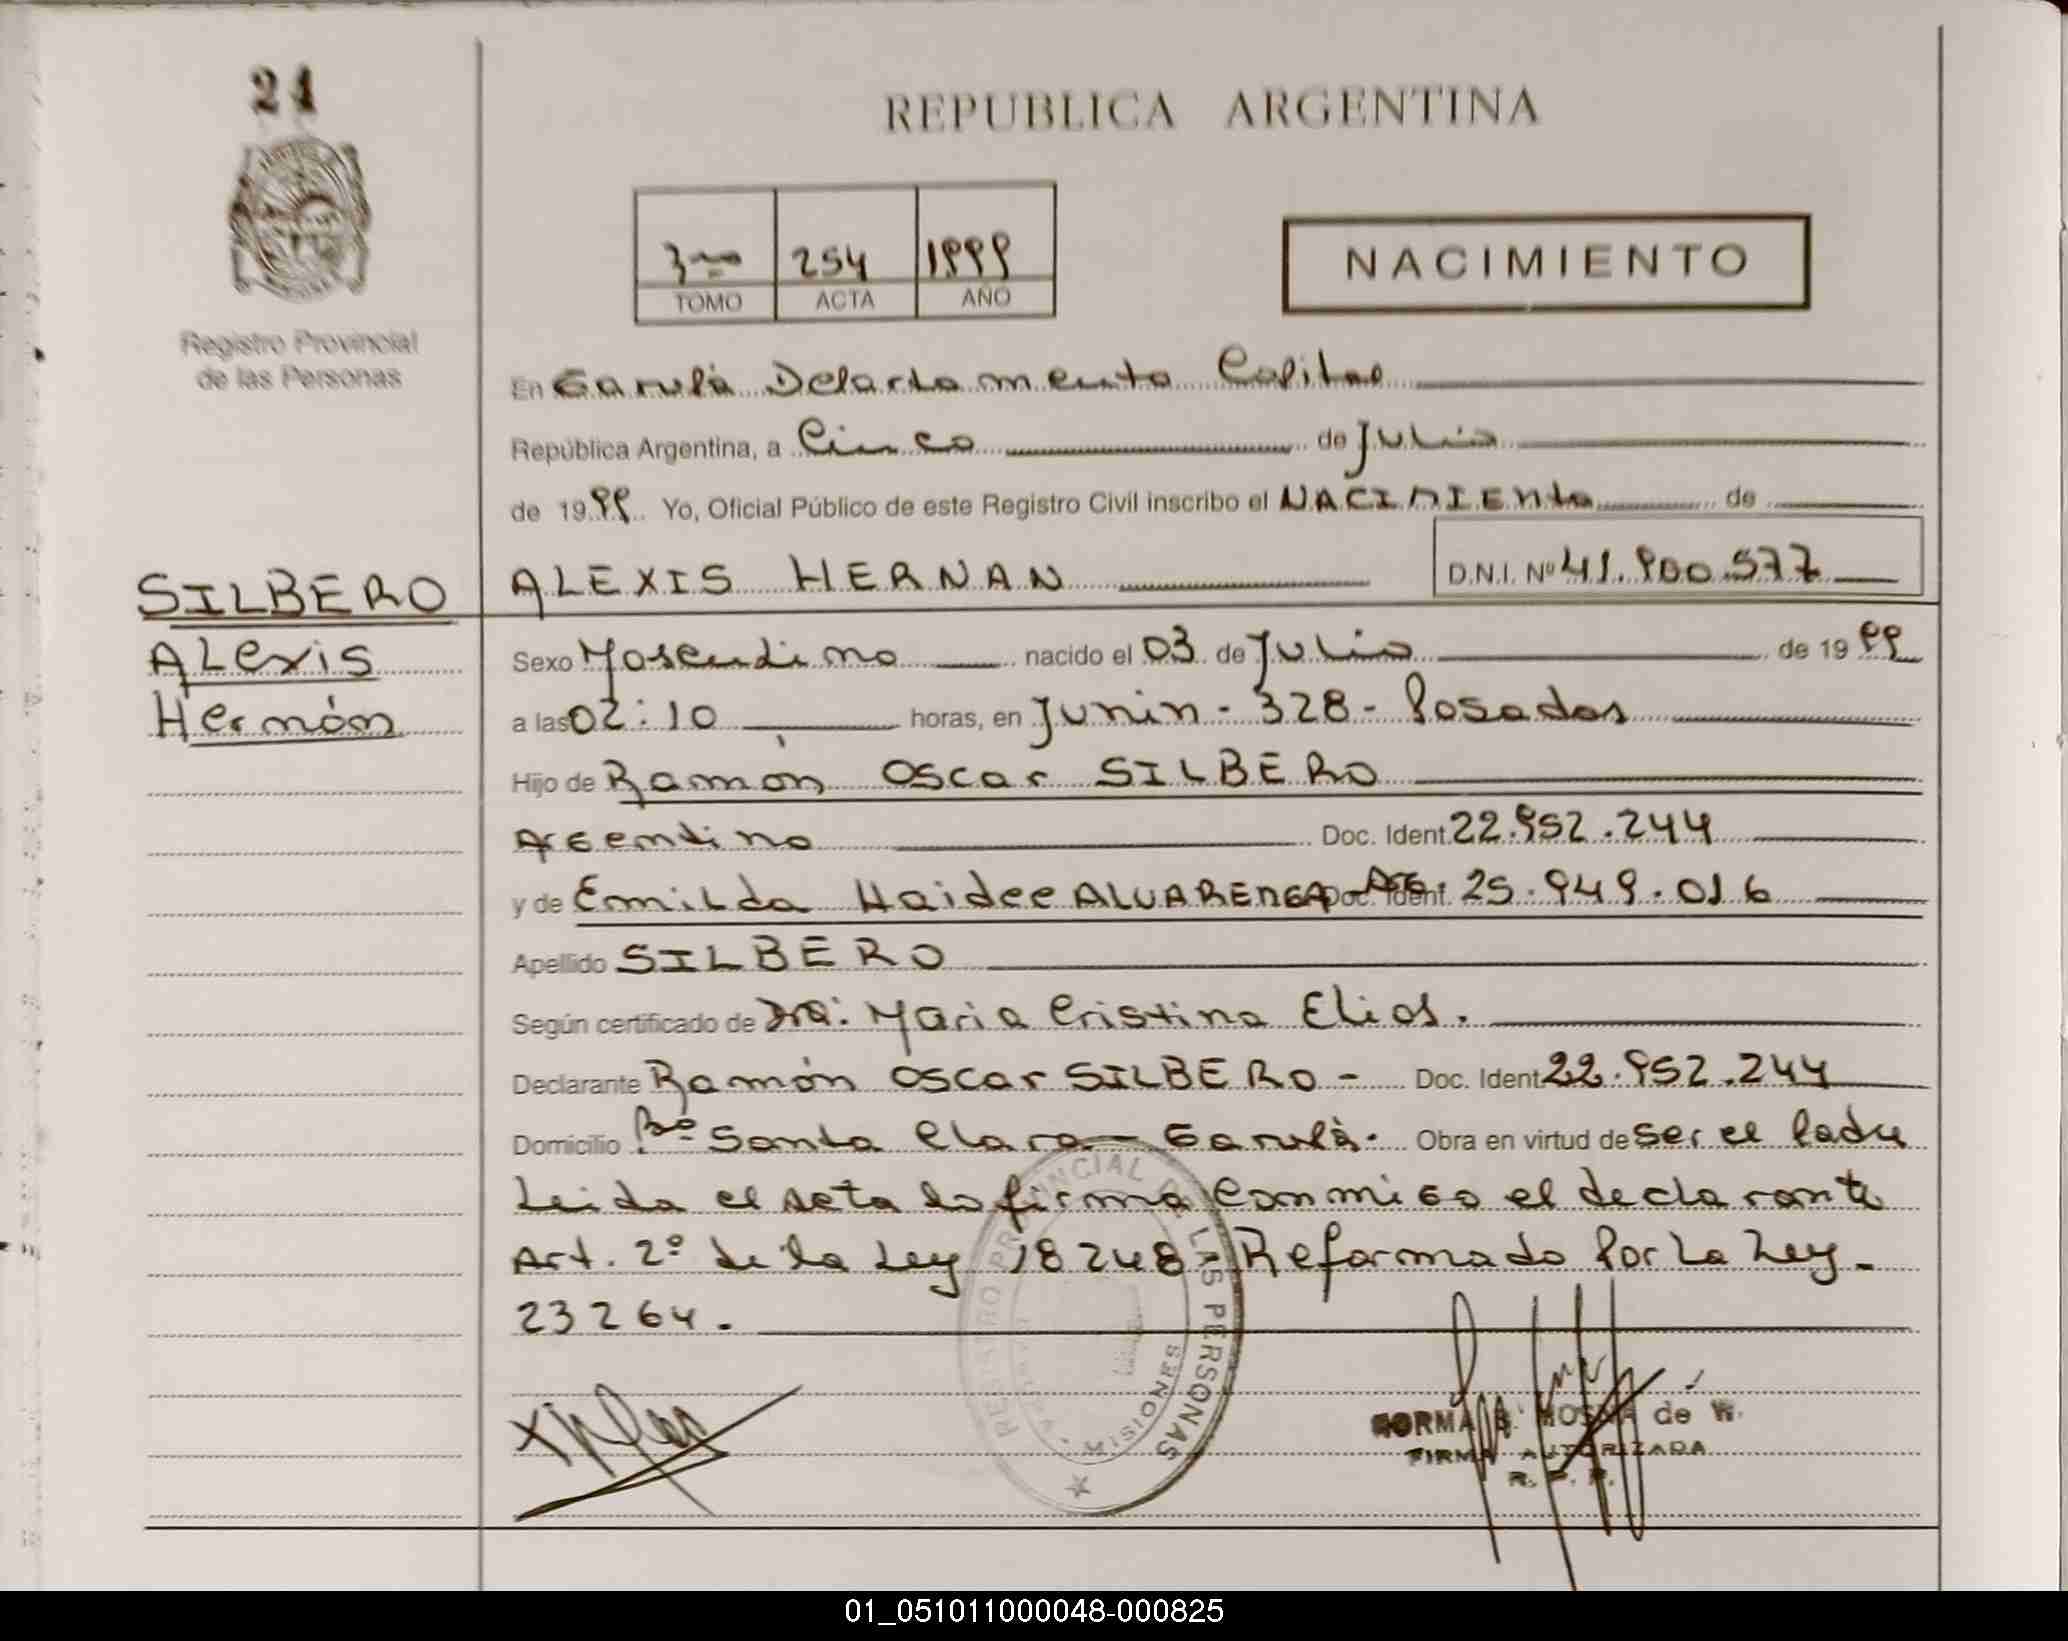 21
REPUBLICA ARGENTINA
3ro 254 1999
TOMO ACTA AÑO
NACIMIENTO
Registro Provincial
de las Personas
En Garupà Departamento Capital
República Argentina, a Cinco de Julio
de 1999 Yo, Oficial Público de este Registro Civil inscribo el NACIMIENto de
SILBERO
Alexis
Hernán
ALEXIS HERNAN D.N.I. Nº 41.900.577
Sexo Masculino nacido el 03 de Julio de 1999
a las 02:10 horas, en Junin - 328 - Posadas
Hijo de Ramón Oscar SILBERO
Argentino Doc. Ident. 22.952.244
y de Emilda Haidee ALVARENGA Arg. Doc. Ident. 25.949.016
Apellido SILBERO
Según certificado de Dra: Maria Cristina Elias.
Declarante Ramón Oscar SILBERO - Doc. Ident. 22.952.244
Domicilio Bº Santa Clara - Garupà. Obra en virtud de ser el Padre
Leida el acta la firma Conmigo el declarante
Art. 2º de la Ley 18248 Reformado Por La Ley -
23264.
REGISTRO PROVINCIAL DE LAS PERSONAS
MISIONES
NORMA B. MOSNA de W.
FIRMA AUTORIZADA
R. P. P.
01_051011000048-000825